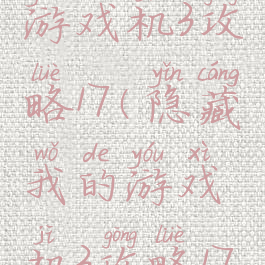 游戏机3攻
lüè yǐn cáng
略17(隐藏
wǒ de yóu xì
我的游戏
jī gōng lüè
机3攻略17